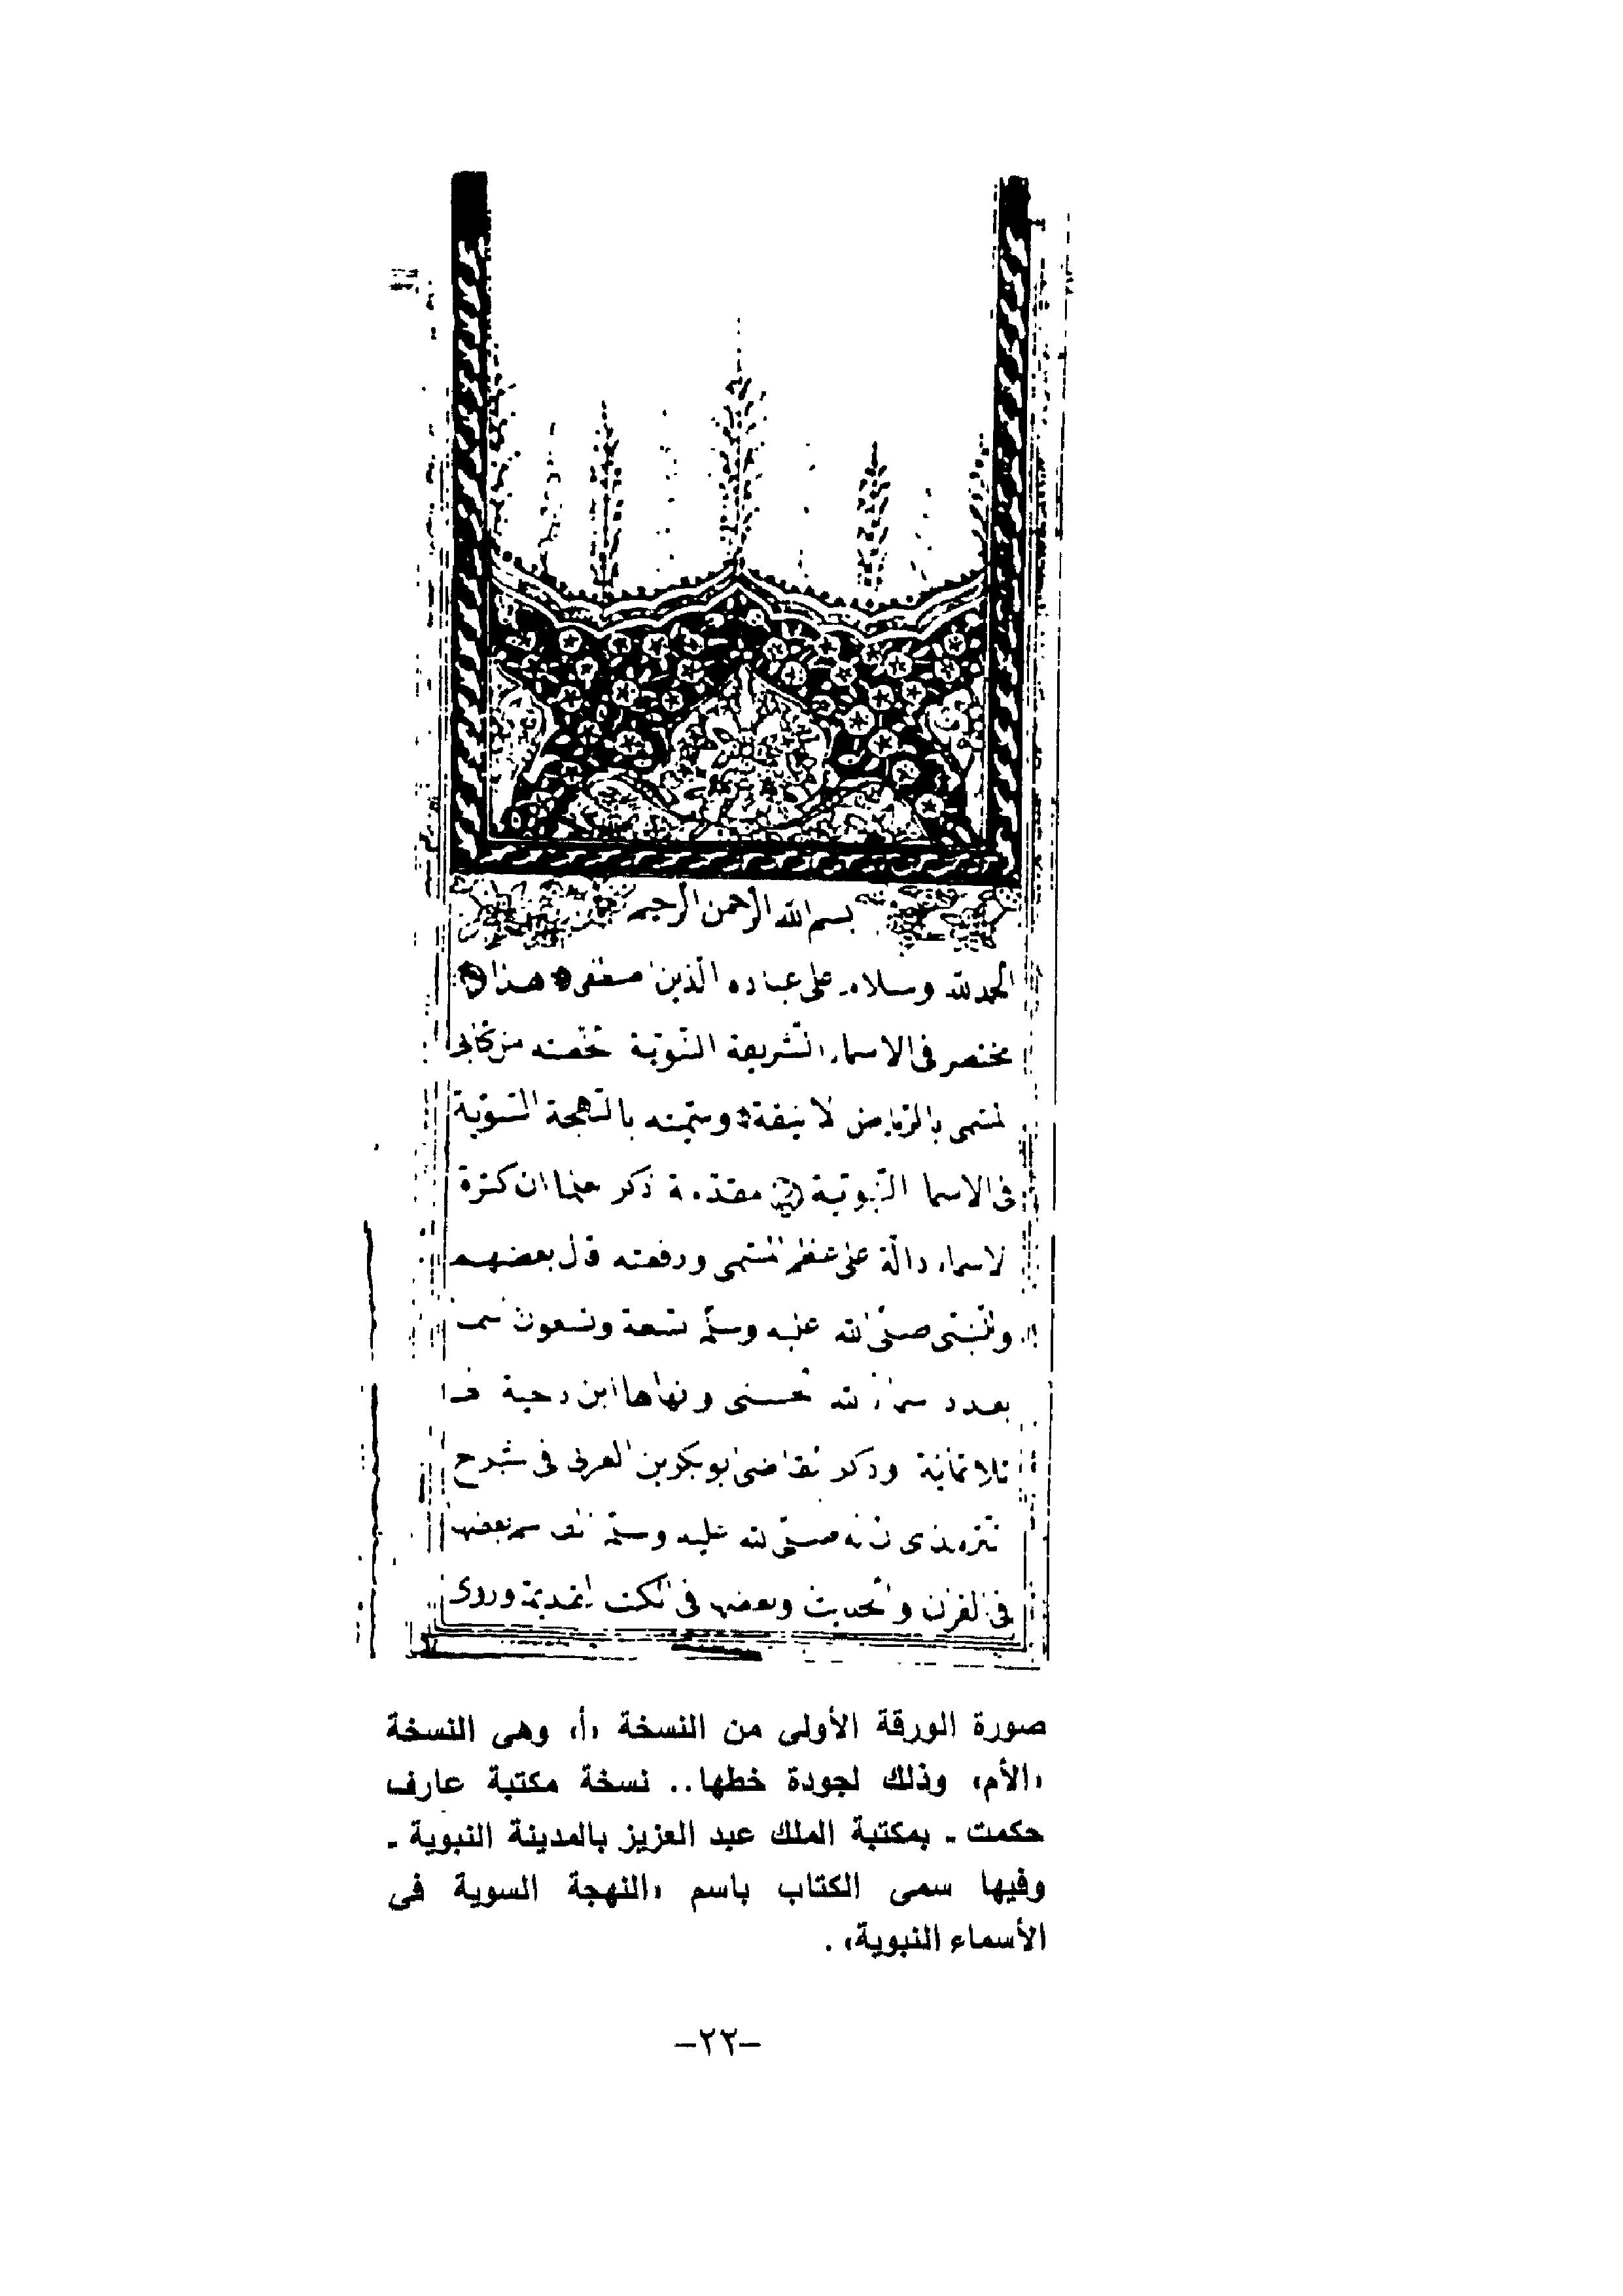 بسم الله الرحمن الرحيم
الحمد لله وسلام على عباده الذين اصطفى هذا
مختصر فى الاسماء الشريفة النبوية لخصته من كتابى
المسمى بالرياض الانيقة وسميته بالنهجة السوية
فى الاسما النبوية مقدمة ذكر علما ان كثرة
الاسماء دالة على عظم المسمى ورفعته قال بعضهم
وللنبى صلى الله عليه وسلم تسعة وتسعون اسما
بعدد اسماء الله الحسنى وانهاها ابن دحية الى
ثلاثمائة وذكر القاضى ابو بكر بن العربى فى شرح
الترمذى ان له صلى الله عليه وسلم الف اسم بعضها
فى القران والحديث وبعضها فى الكتب القديمة وروى
صورة الورقة الأولى من النسخة «أ» وهى النسخة
«الأم» وذلك لجودة خطها.. نسخة مكتبة عارف
حكمت ـ بمكتبة الملك عبد العزيز بالمدينة النبوية ـ
وفيها سمى الكتاب باسم «النهجة السوية فى
الأسماء النبوية» .
–٢٢–